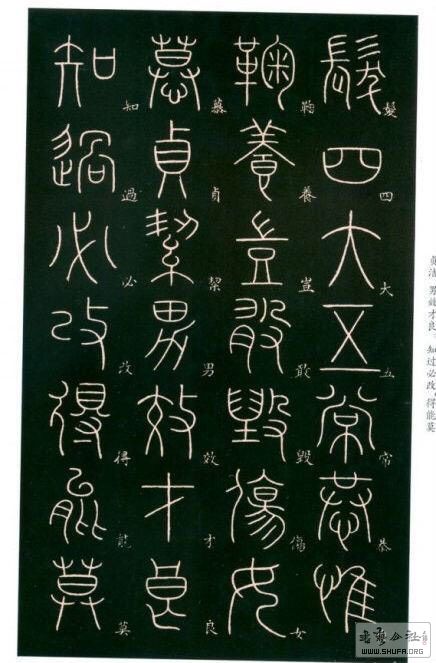 髮四大五常恭惟
鞠養豈敢毀傷女
慕貞絜男效才良
知過必改得能莫
髮四大五常恭惟
鞠養豈敢毀傷女
慕貞絜男效才良
知過必改得能莫
貞洁。男效才良。知过必改，得能莫
WWW.SHUFA.ORG